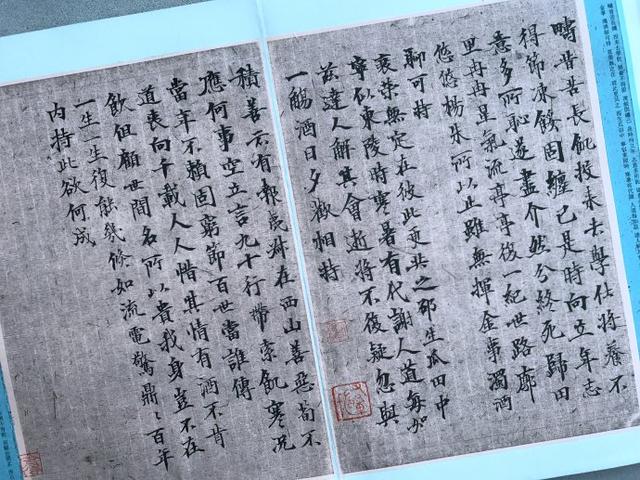 疇昔苦長飢投耒去學仕將養不
得節凍餒固纏己是時向立年志
意多所恥遂盡介然分終死歸田
里冉冉星氣流亭亭復一紀世路廓
悠悠楊朱所以止雖無揮金事濁酒
聊可恃
衰榮無定在彼此更共之邵生瓜田中
寧似東陵時寒暑有代謝人道每如
茲達人解其會逝將不復疑忽與
一觴酒日夕歡相持
積善云有報夷叔在西山善惡苟不
應何事空立言九十行帶索飢寒況
當年不賴固窮節百世當誰傳
道喪向千載人人惜其情有酒不肯
飲但顧世間名所以貴我身豈不在
一生一生復能幾倏如流電驚鼎〻百年
內持此欲何成